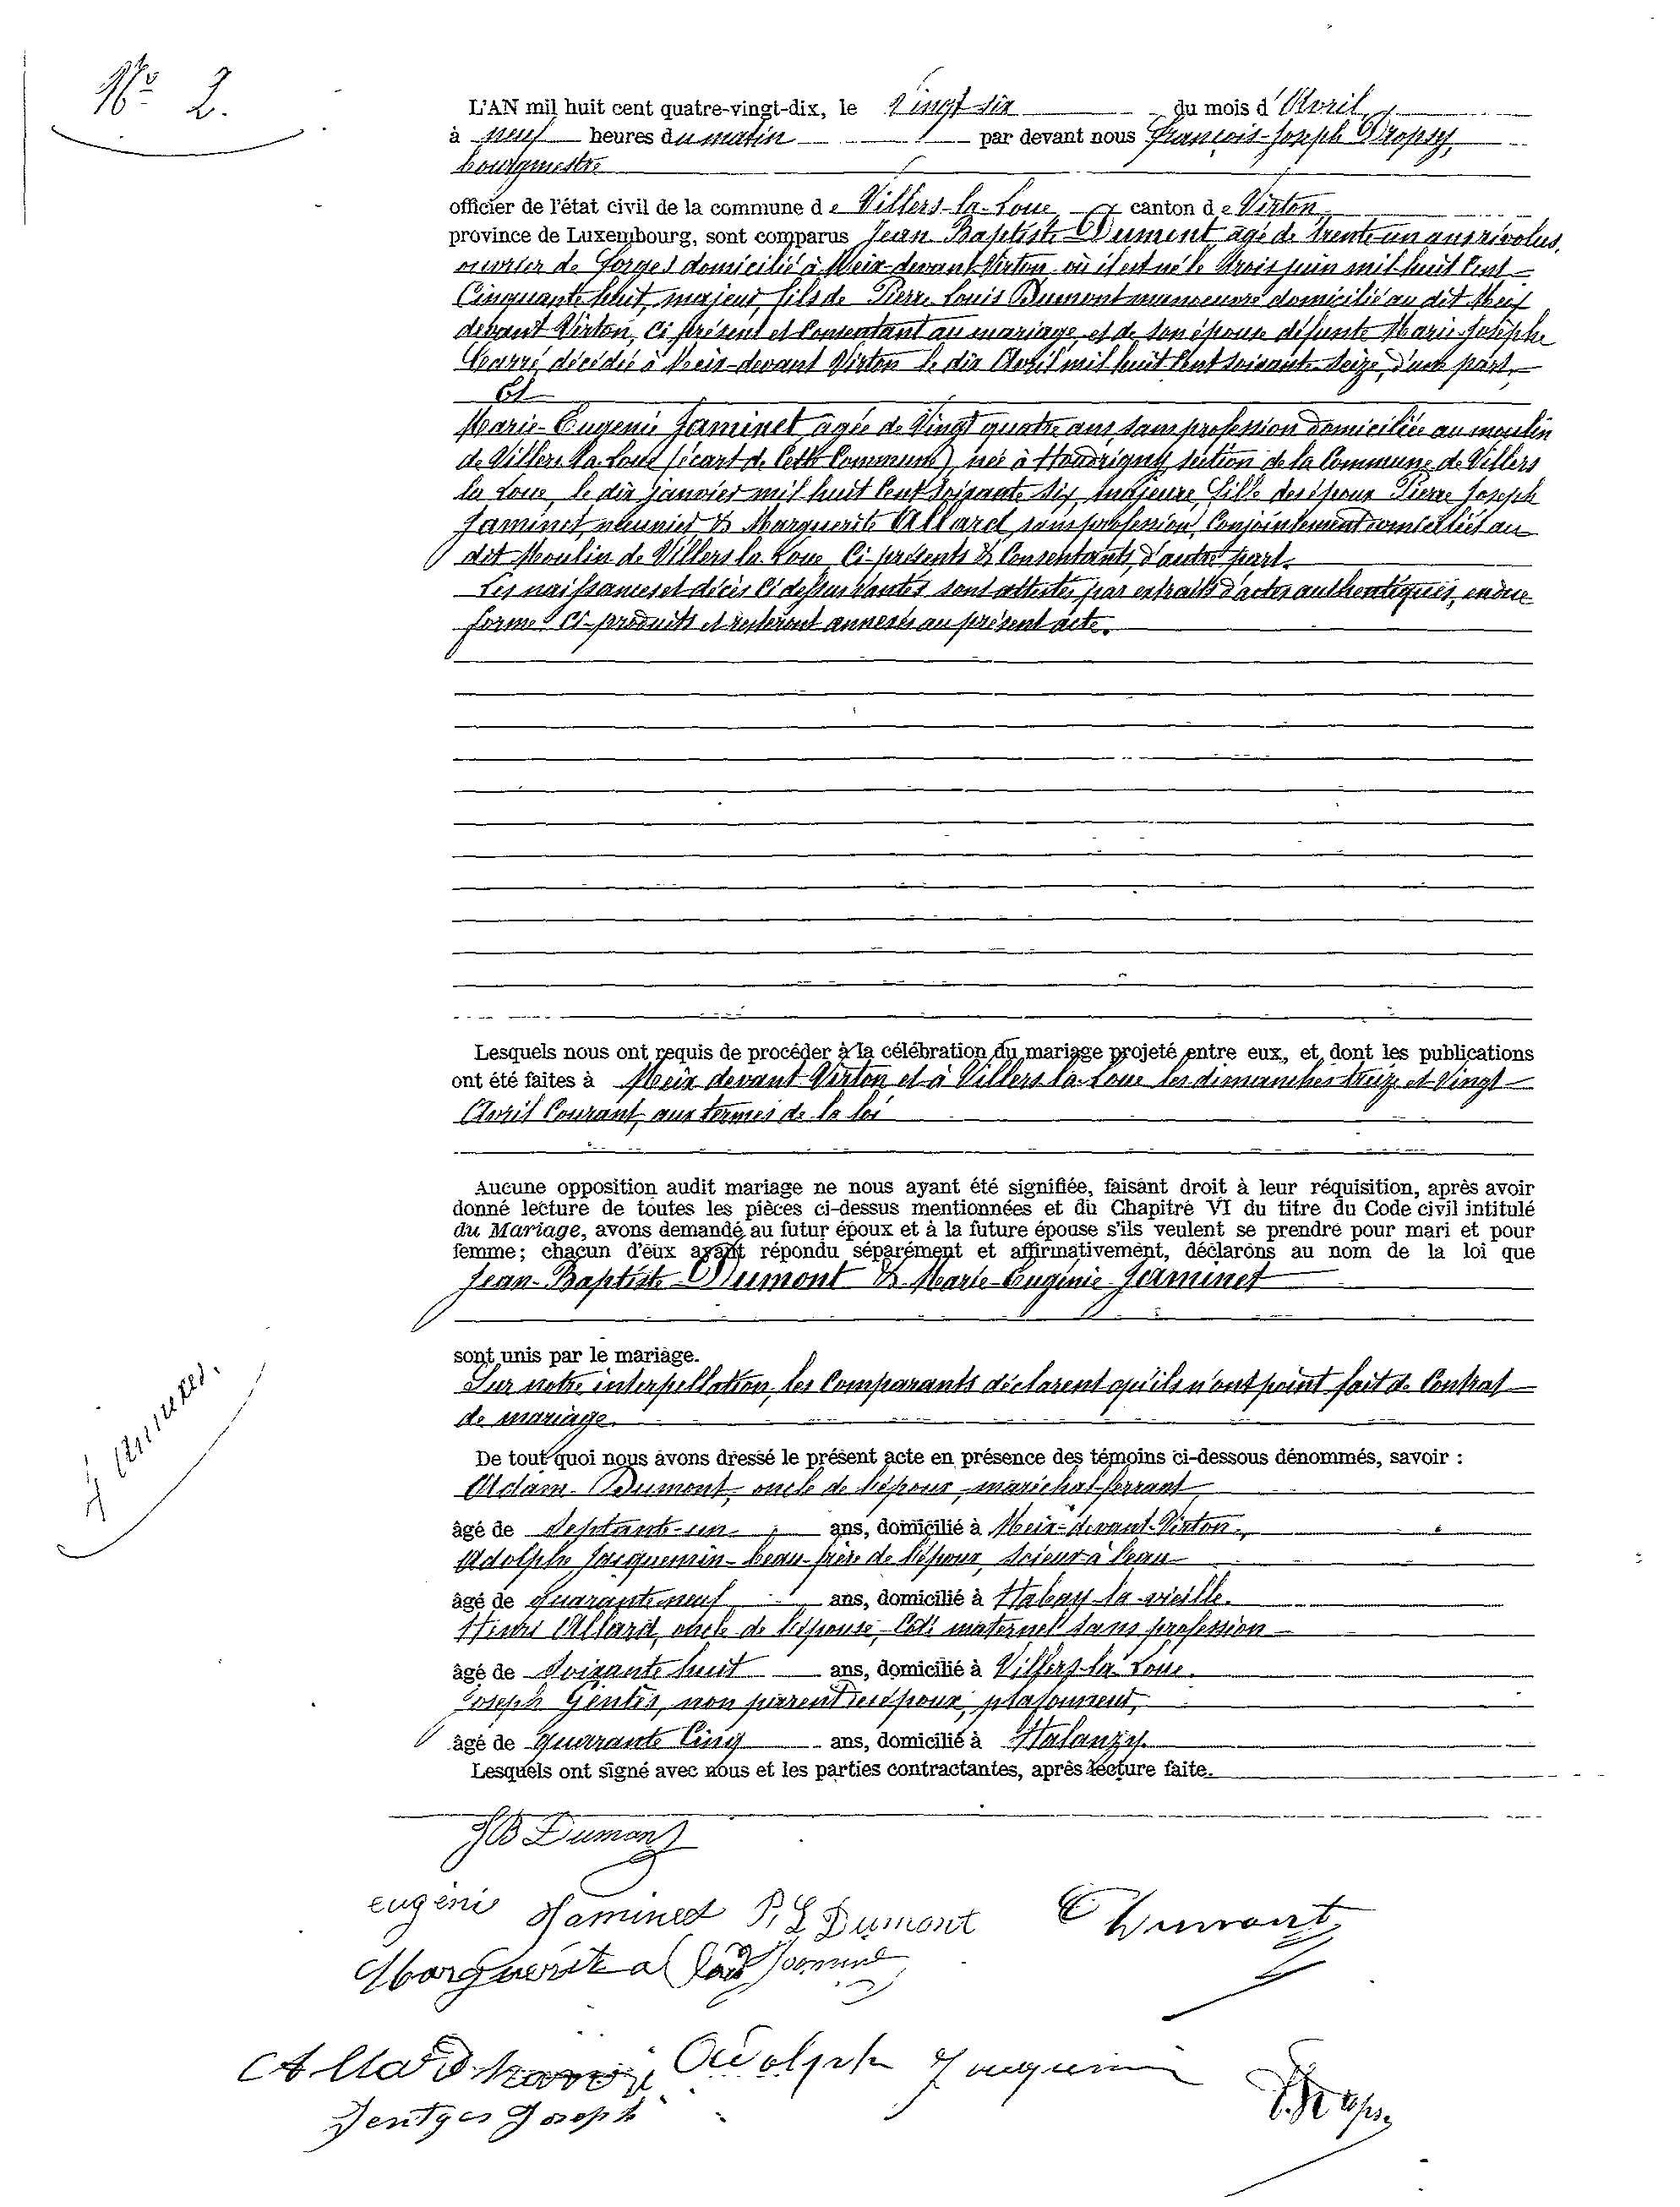 N° 2.
L'AN mil huit cent quatre-vingt-dix, le Vingt six du mois d'Avril
à neuf heures du matin par devant nous François-Joseph Dropsy,
bourgmestre
officier de l'état civil de la commune de Villers-la-Loue canton de Virton
province de Luxembourg, sont comparus Jean-Baptiste Dumont âgé de trente-un ans révolus,
ouvrier de forges domicilié à Meix-devant-Virton où il est né le trois juin mil huit Cent
Cinquante huit, majeur, fils de Pierre Louis Dumont manoeuvre domicilié au dit Meix
devant Virton, Ci présent et Consentant au mariage et de son épouse défunte Marie-Josèphe
décédée à Meix-devant Virton le dix Avril mil huit Cent soixante seize, d'une part,
Et
Marie-Eugenie Jaminet agée de Vingt quatre ans, sans profession domiciliée au moulin
de Villers la Loue (écart de Cette Commune), née à Houdrigny, section de la Commune de Villers
la Loue, le dix janvier mil huit Cent soixante six, majeure, fille des époux Pierre Joseph
Jaminet, meunier & Marguerite Allard, sans profession, Conjointement domiciliés au
dit Moulin de Villers la Loue, Ci-présents & Consentants, d'autre part.
Les naissances et décès Ci dessus Vantés sont attestés par extraits d'actes authentiques, en due
forme Ci-produits et resteront annexés au présent acte.
Lesquels nous ont requis de procéder à la célébration du mariage projeté entre eux, et dont les publications
ont été faites à Meix devant Virton et à Villers la Loue les dimanches treize et Vingt
Avril Courant, aux termes de la loi
Aucune opposition audit mariage ne nous ayant été signifiée, faisant droit à leur réquisition, après avoir
donné lecture de toutes les pièces ci-dessus mentionnées et du Chapitre VI du titre du Code civil intitulé
du Mariage, avons demandé au futur époux et à la future épouse s'ils veulent se prendre pour mari et pour
femme; chacun d'eux ayant répondu séparément et affirmativement, déclarons au nom de la loi que
Jean-Baptiste Dumont & Marie-Eugénie Jaminet
sont unis par le mariage.
Sur notre interpellation, les Comparants déclarent qu'ils n'ont point fait de Contrat
de mariage.
annexes.
De tout quoi nous avons dressé le présent acte en présence des témoins ci-dessous dénommés, savoir :
Adam Dumont, oncle de l'époux, maréchal-ferrant
âgé de septante-un ans, domicilié à Meix-devant-Virton.
Adolphe Jacquemin-beau-frère de l'époux, scieur à l'eau
âgé de quarante neuf ans, domicilié à Habay-la-vieille.
Henri Allard, oncle de l'épouse, Coté maternel sans profession
âgé de soixante huit ans, domicilié à Villers-la-Loue.
Joseph Gentès, non parent des époux, plafonneur,
âgé de quarante Cinq ans, domicilié à Halanzy.
Lesquels ont signé avec nous et les parties contractantes, après lecture faite.
JB Dumont
eugéni Jaminet P. L Dumont Dumont
Marguerite allard
Allard Adolphe Jacquemin
Jentges Joseph